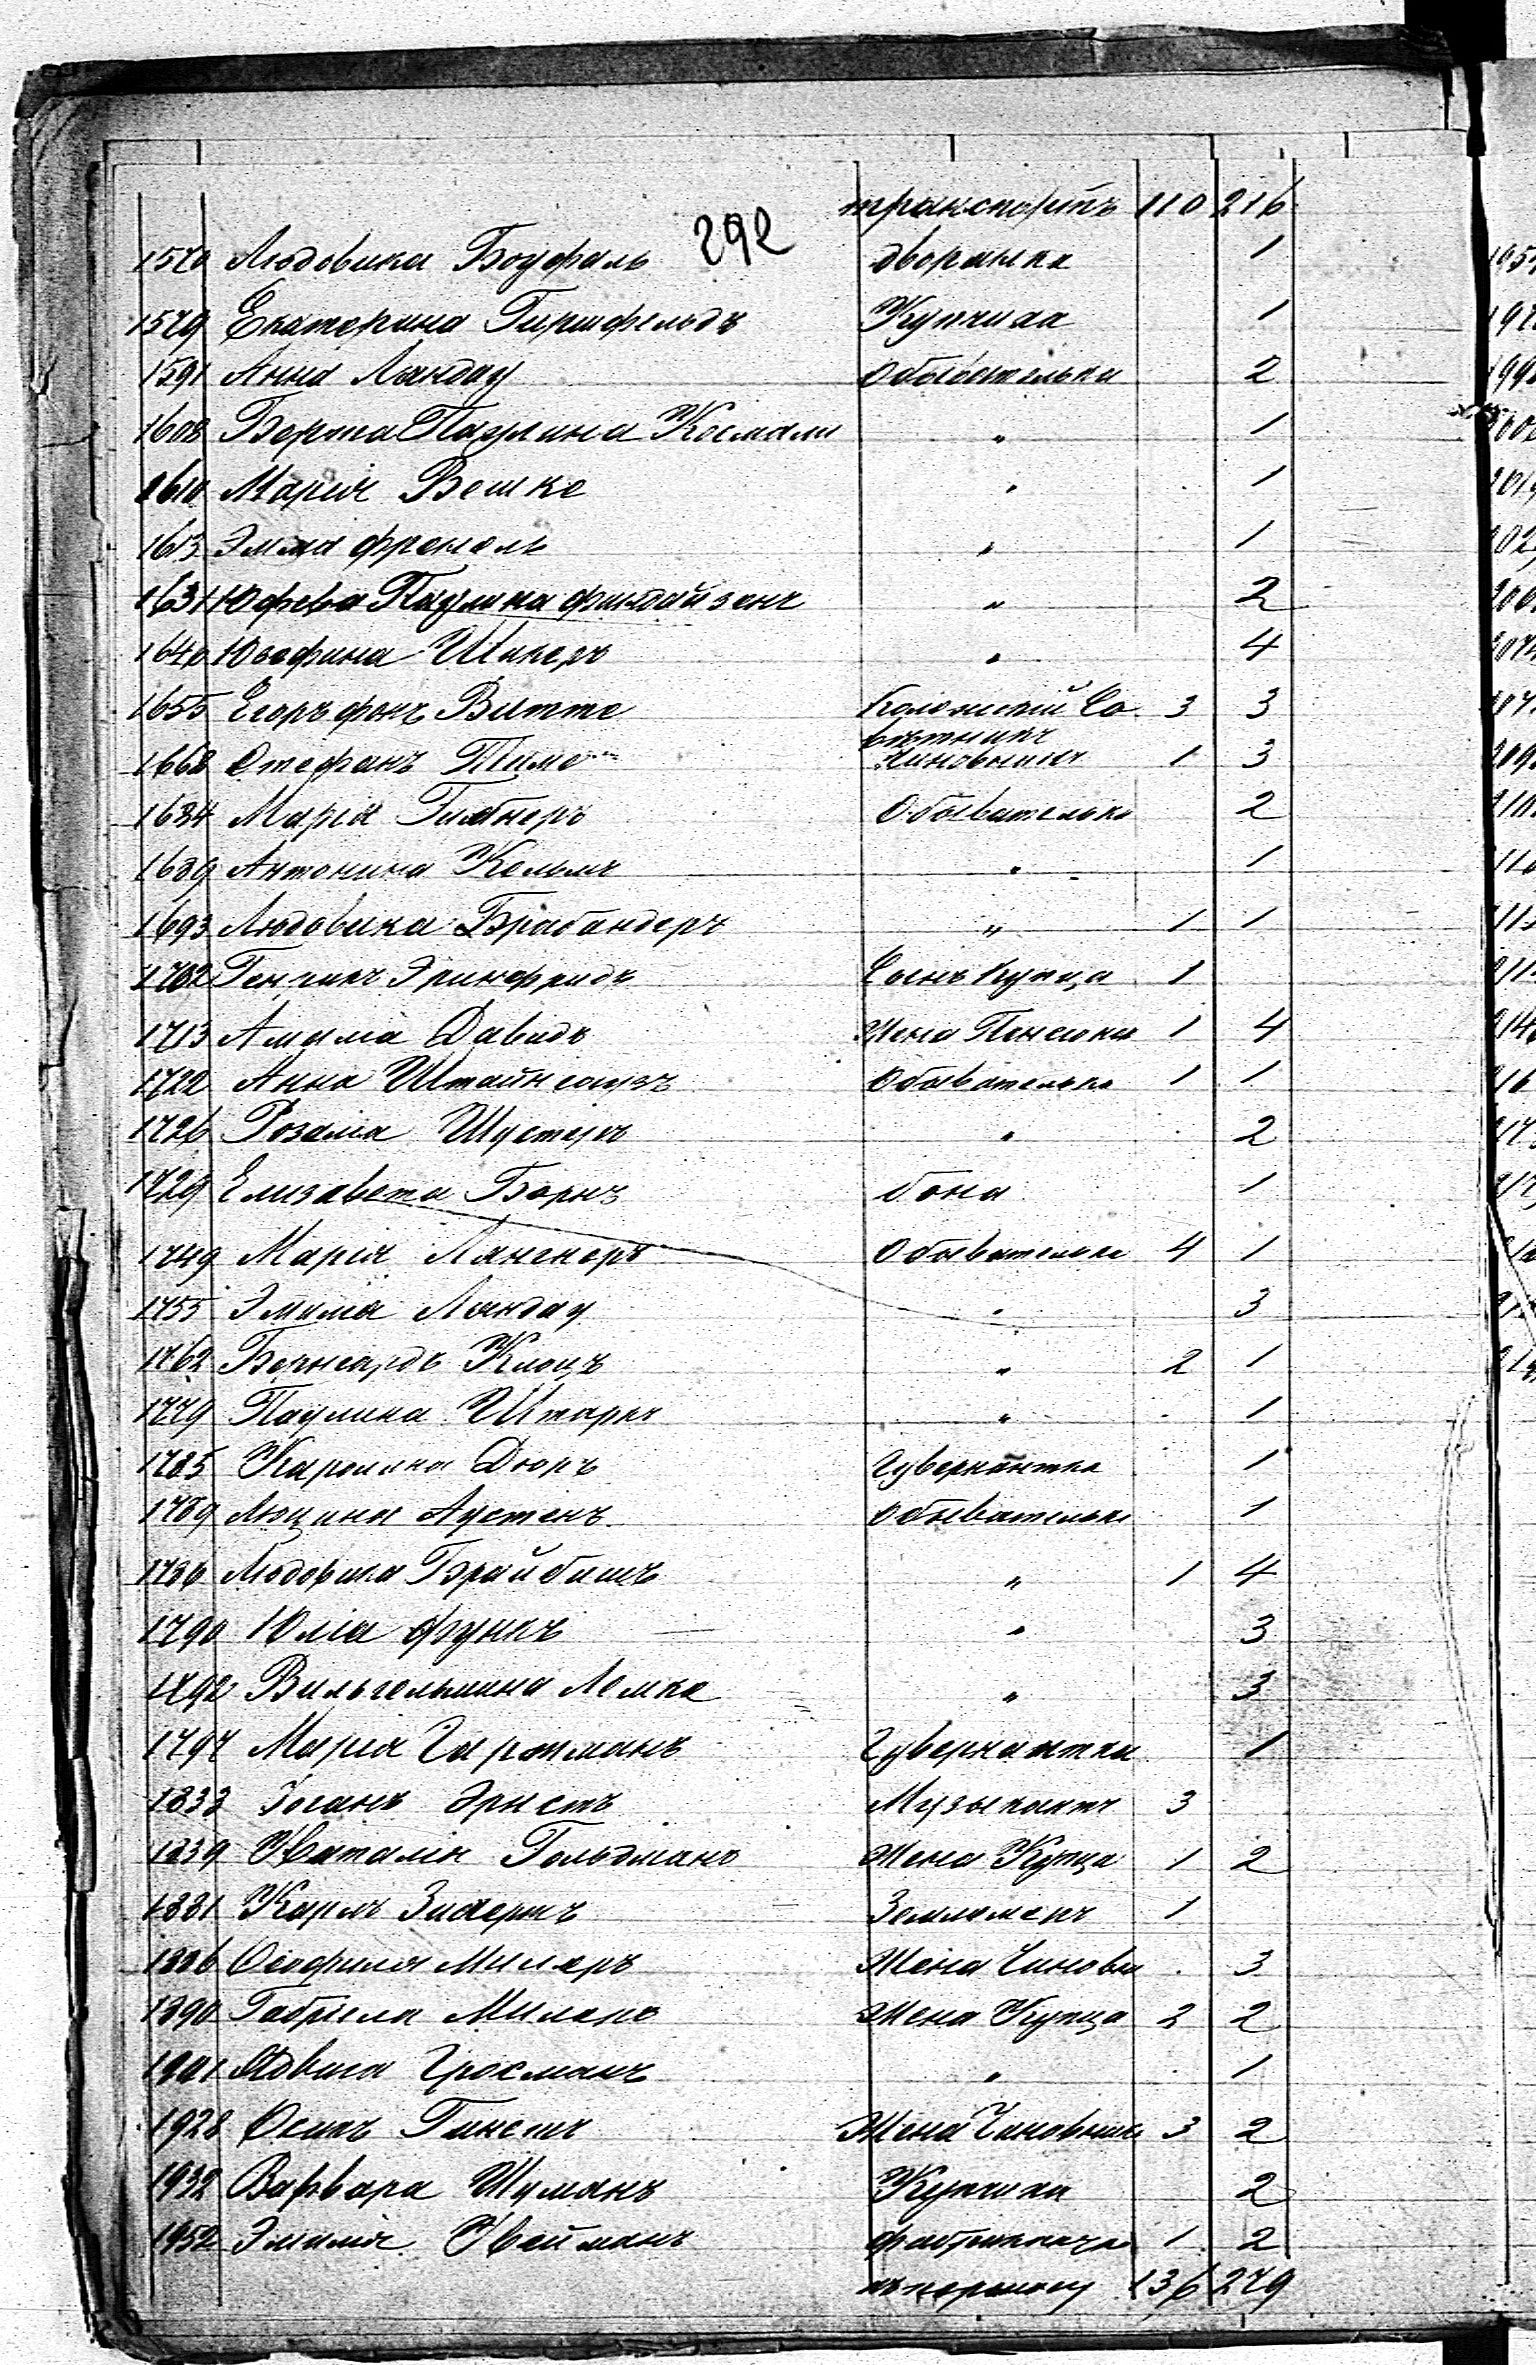 транспортъ 110 216
292
1570 Людовика Боуфаль дворянка 1
1579 Екатерина Гиршфельдъ Купчиха 1
1591 Анна Ляндау Обывателька 2
1608 Берта Паулина Космали " 1
1610 Марія Вешке " 1
1613 Эмма Френель " 1
1631 Юзефа Паулина Финдайзенъ " 2
1640 Юзефина Шикеръ " 4
1655 Егоръ фонъ Витте Колежскій Со 3 3
вѣтникъ
1668 Стефанъ Тимо Чиновникъ 1 3
1684 Марія Гибнеръ Обывателька 2
1689 Антонина Кельмъ " 1
1693 Людовика Брабандеръ " 1 1
1702 Генрихъ Эринфридъ Сынъ Купца 1
1713 Амалія Давидъ Жена Пенсіон 1 4
1722 Анна Штайнгаузъ Обывателька 1 1
1726 Розалія Шустеръ " 2
1729 Елизавета Борнъ бона 1
1749 Марія Лянгнеръ Обывателька 4 1
1755 Эмилія Ляндау " 3
1762 Бернгардъ Клоцъ " 2 1
1779 Паулина Штаркъ " 1
1785 Каролина Дюръ Гувернантка 1
1789 Люцина Аустенъ Обывателька 1
1786 Людовика Брайбишъ " 1 4
1790 Юлія Функъ " 3
1792 Вильгельмина Лемке " 3
1797 Марія Гартманъ Гувернантка 1
1833 Іоганъ Эрнстъ Музыкантъ 3
1839 Наталія Гольдманъ Жена Купца 1 2
1881 Карлъ Зигертъ Землемеръ 1
1886 Феофиля Милеръ Жена Чиновн 3
1890 Габріела Миленъ Жена Купца 2 2
1901 Ядвига Гросманъ " 1
1928 Осипъ Гинстъ Жена Чиновник 3 2
1932 Варвара Шуманъ Купчиха 2
1952 Эмилія Нейманъ Фабриканта 1 2
къ переносу 136 279